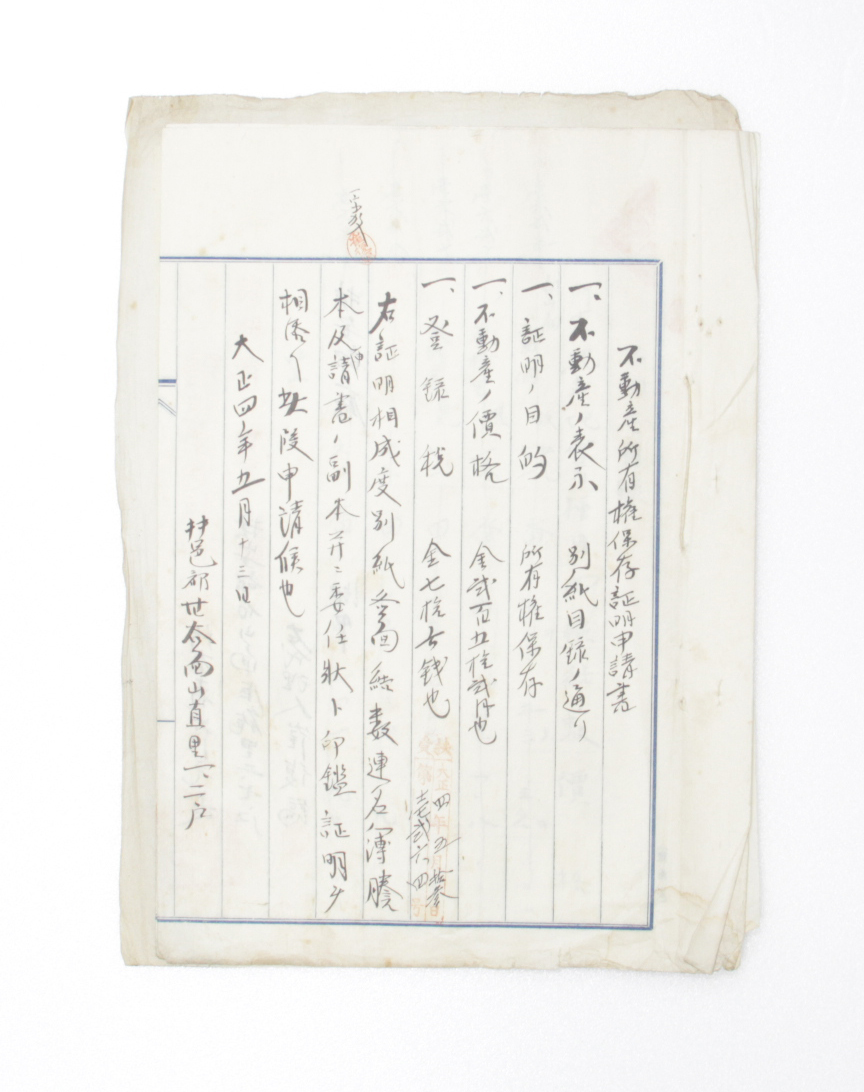 不動産所有権保存証明申請書
一、不動産ノ表示 別紙目録ノ通リ
一、証明ノ目的 所有権保存
一、不動産ノ價格 金貳百五拾貳円也
一、登録税 金七拾六銭也
四年五月拾参日
右証明相成度別紙各面結数連名簿謄
本及申請書ノ副本并ニ委任状ト印鑑証明ヲ
相添ヘ此段申請候也
大正四年五月十三日
郡 西山直里一、二戸